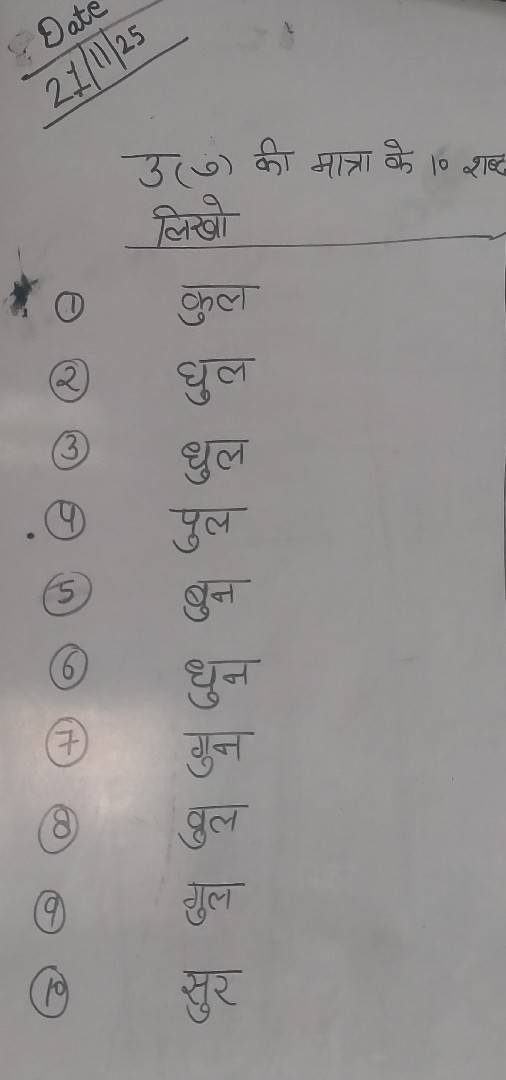 Date
27/11/25
उ(ु) की मात्रा के 10 शब्द
लिखो
① कुल
② घुल
③ धुल
④ पुल
⑤ बुन
⑥ धुन
⑦ गुन
⑧ वुल
⑨ गुल
⑩ सुर